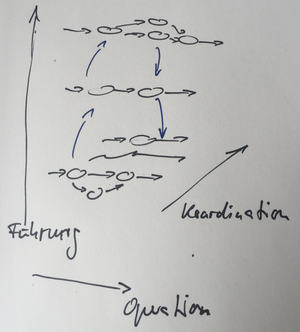 Führung
Koordination
Operation